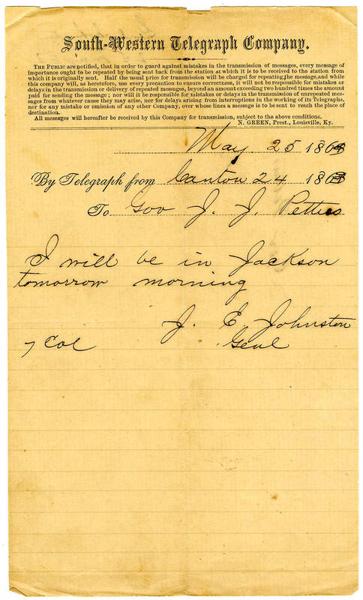 South-Western Telegraph Company.
THE PUBLIC are notified, that in order to guard against mistakes in the transmission of messages, every message of
importance ought to be repeated by being sent back from the station at which it is to be received to the station from
which it is originally sent. Half the usual price for transmission will be charged for repeating the message, and while
this company will, as heretofore, use every precaution to ensure correctness, it will not be responsible for mistakes or
delays in the transmission or delivery of repeated messages, beyond an amount exceeding two hundred times the amount
paid for sending the message; nor will it be responsible for mistakes or delays in the transmission of unrepeated mes-
sages from whatever cause they may arise, nor for delays arising from interruptions in the working of its Telegraphs,
nor for any mistake or omission of any other Company, over whose lines a message is to be sent to reach the place of
destination.
All messages will hereafter be received by this Company for transmission, subject to the above conditions.
N. GREEN, Prest., Louisville, Ky.
May 25 1863
By Telegraph from Canton 24 1863
To Gov J. J. Pettus
I will be in Jackson
tomorrow morning
J. E. Johnston
7 Col Genl